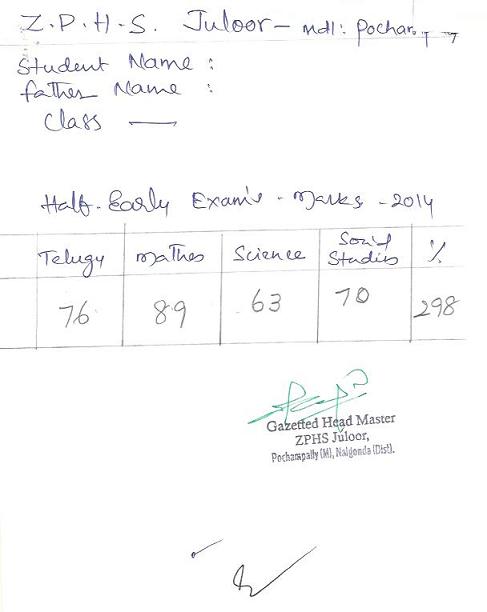 Z.P.H.S. Juloor - mdl: Pochar
Student Name :
father Name :
Class —
Half-Early Exam's - Marks - 2014
Telugy Mathes Science Social Studies %
76 89 63 70 298
Gazetted Head Master
ZPHS Juloor,
Pochampally (M), Nalgonda (Dist).